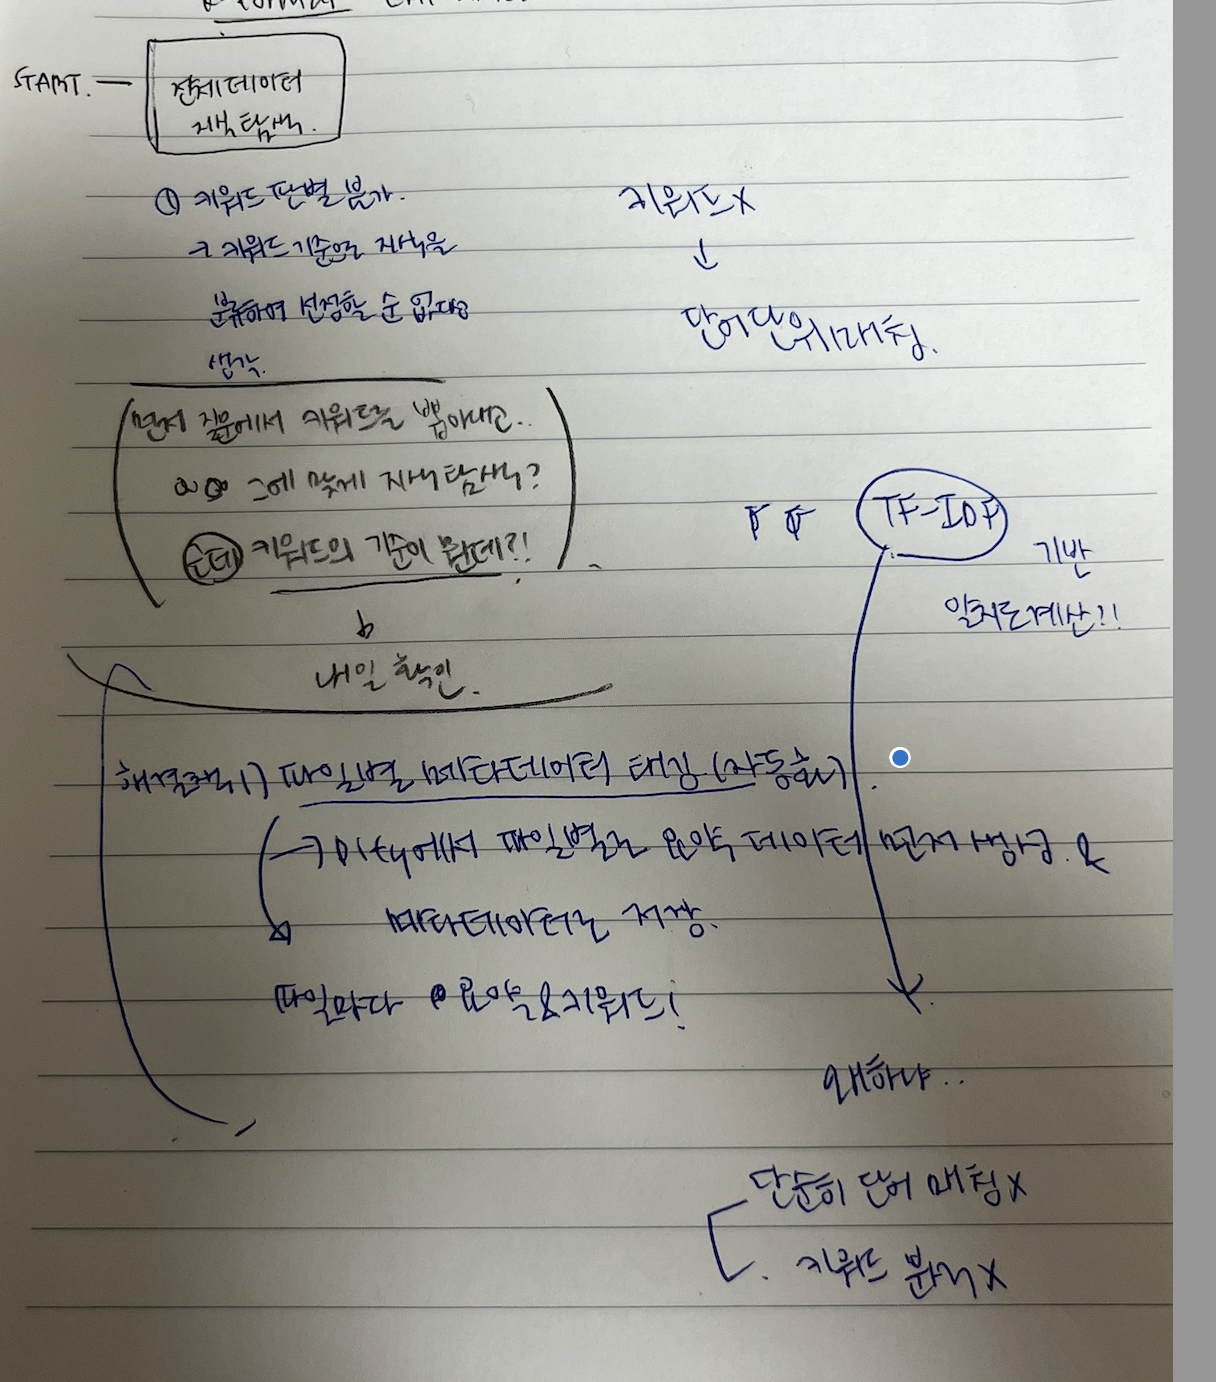 START. — 전체데이터
지식 탐색.
① 키워드 판별 불가.
→ 키워드 기준으로 지식을
분류하여 선정할 순 없다고
생각.
키워드 X
↓
단어단위매칭.
먼저 질문에서 키워드를 뽑아내고..
그에 맞게 지식탐색?
근데 키워드의 기준이 뭔데?!
내일 확인.
TF-IDF
기반
일치도계산?!
해결책1) 파일별 메타데이터 태깅(자동화).
→ Dify에서 파일별로 요약 데이터 먼저 생성 &
메타데이터로 저장.
파일마다 요약 & 키워드!
왜하냐..
단순히 단어 매칭 X
키워드 분석 X